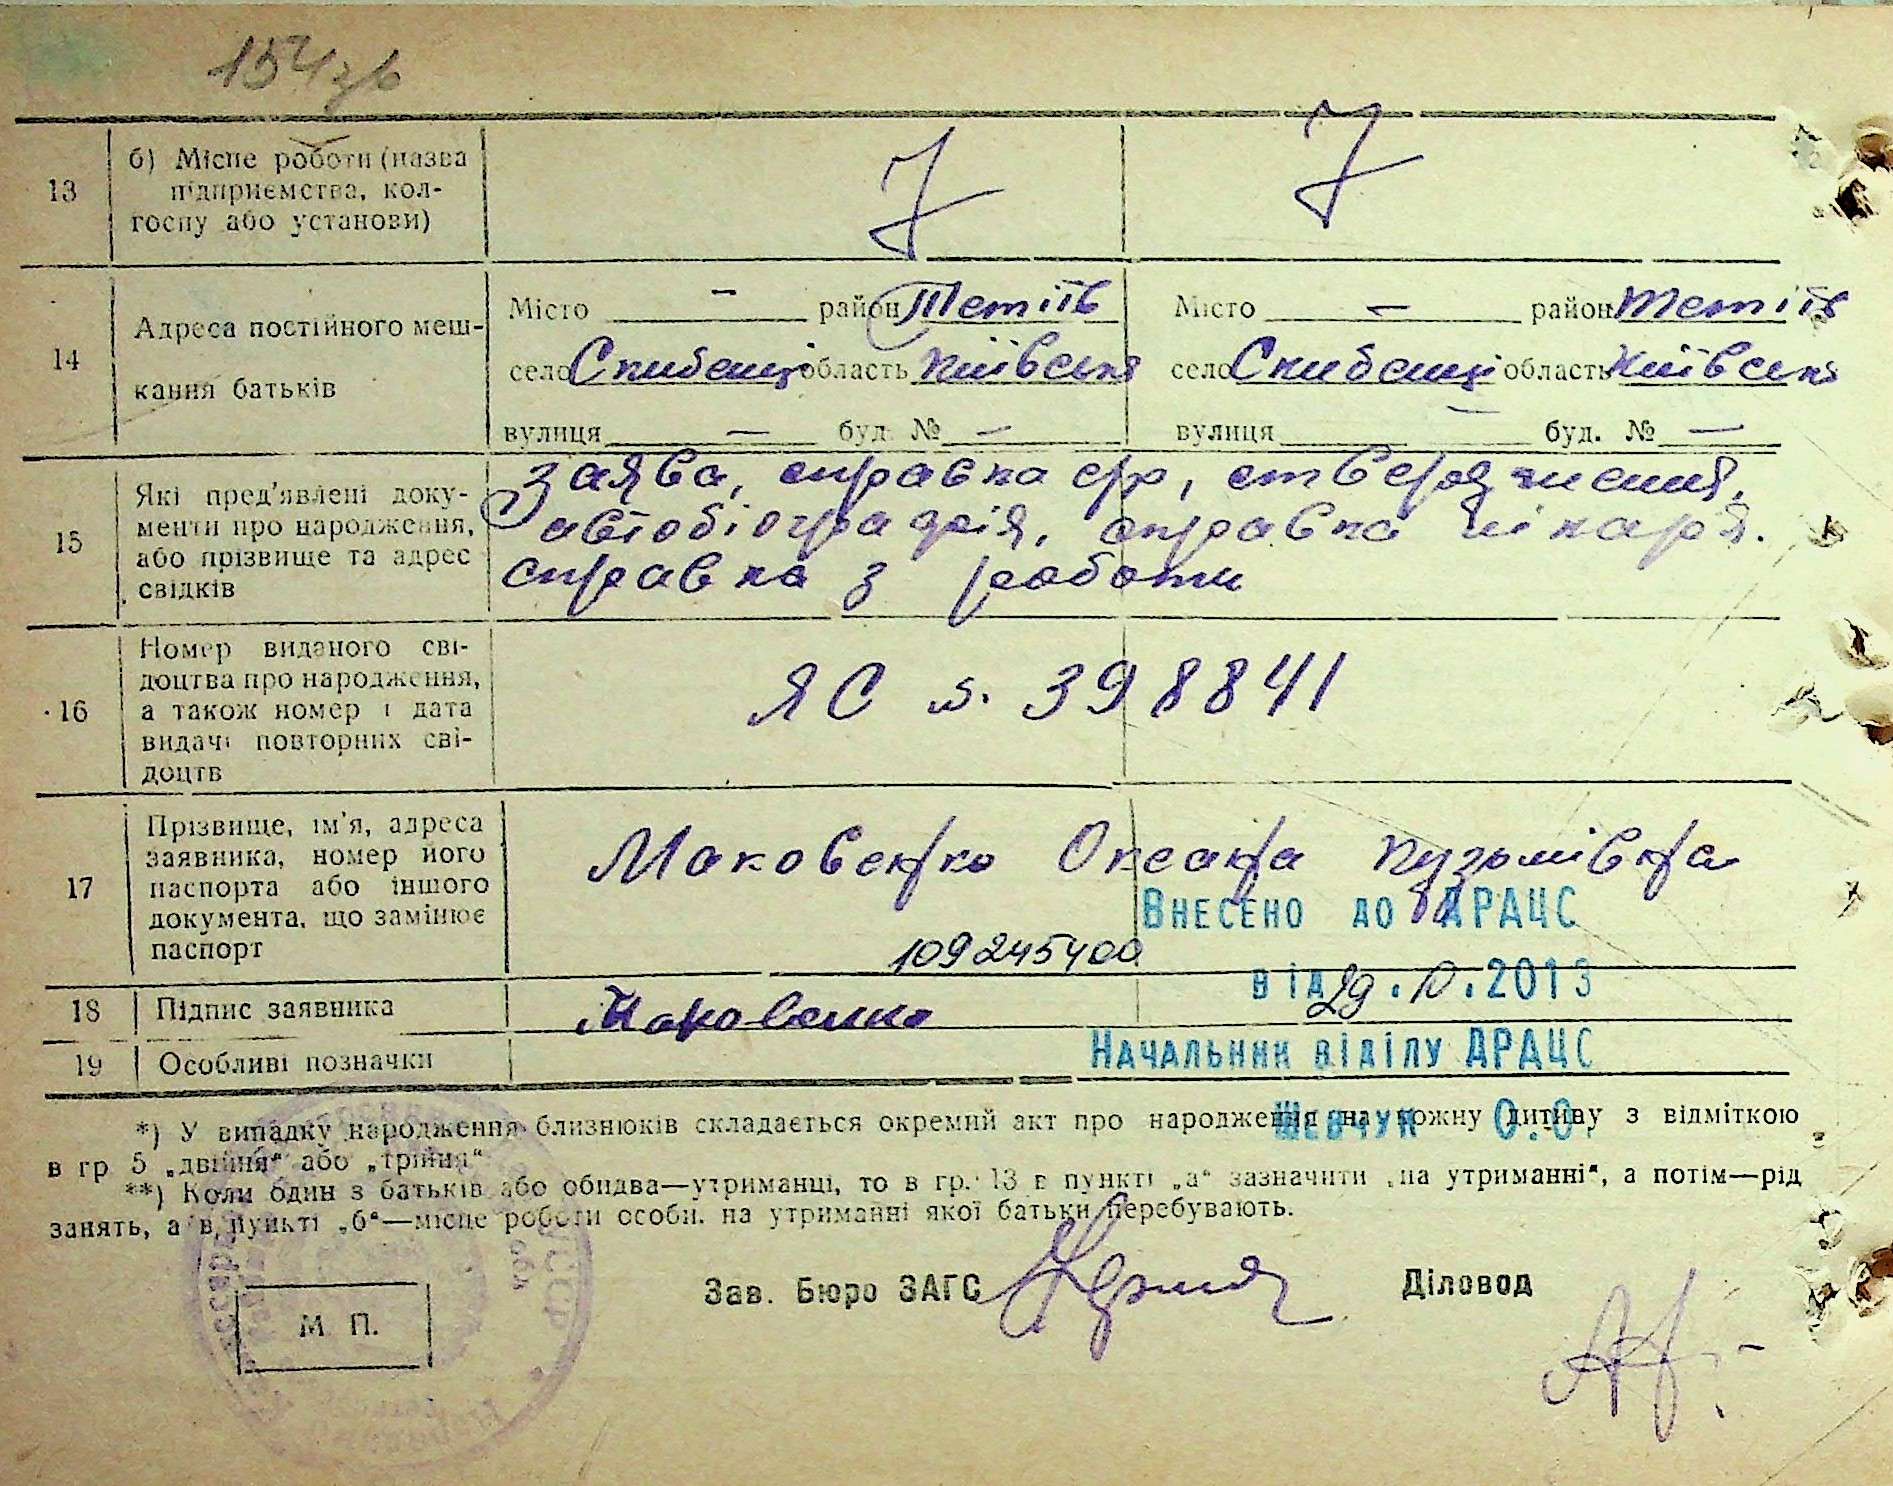 154 зв
13 б) Місце роботи (назва
підприємства, кол-
госпу або установи)
14 Адреса постійного меш-
кання батьків
Місто — район Тетіїв Місто — район Тетіїв
село Скибенці область Київська село Скибенці область Київська
вулиця — буд. № — вулиця — буд. № —
15 Які пред'явлені доку-
менти про народження,
або прізвище та адрес
свідків
заява, справка с/р, ствердження,
автобіографія, справка лікаря.
справка з роботи
16 Номер виданого сві-
доцтва про народження,
а також номер і дата
видачі повторних сві-
доцтв
ЯС № 398841
17 Прізвище, ім'я, адреса
заявника, номер його
паспорта або іншого
документа, що замінює
паспорт
Маковенко Оксана Кузьмівна
109245400
Внесено до ДРАЦС
від 29.10.2013
18 Підпис заявника Маковенко
19 Особливі позначки
Начальник відділу ДРАЦС
Шевчук О.О.
*) У випадку народження близнюків складається окремий акт про народження на кожну дитину з відміткою
в гр 5 „двійня“ або „трійня“
**) Коли один з батьків або обидва—утриманці, то в гр. 13 в пункті „а“ зазначити „на утриманні“, а потім—рід
занять, а в пункті „б“—місце роботи особи. на утриманні якої батьки перебувають.
Зав. Бюро ЗАГС Діловод
М П.